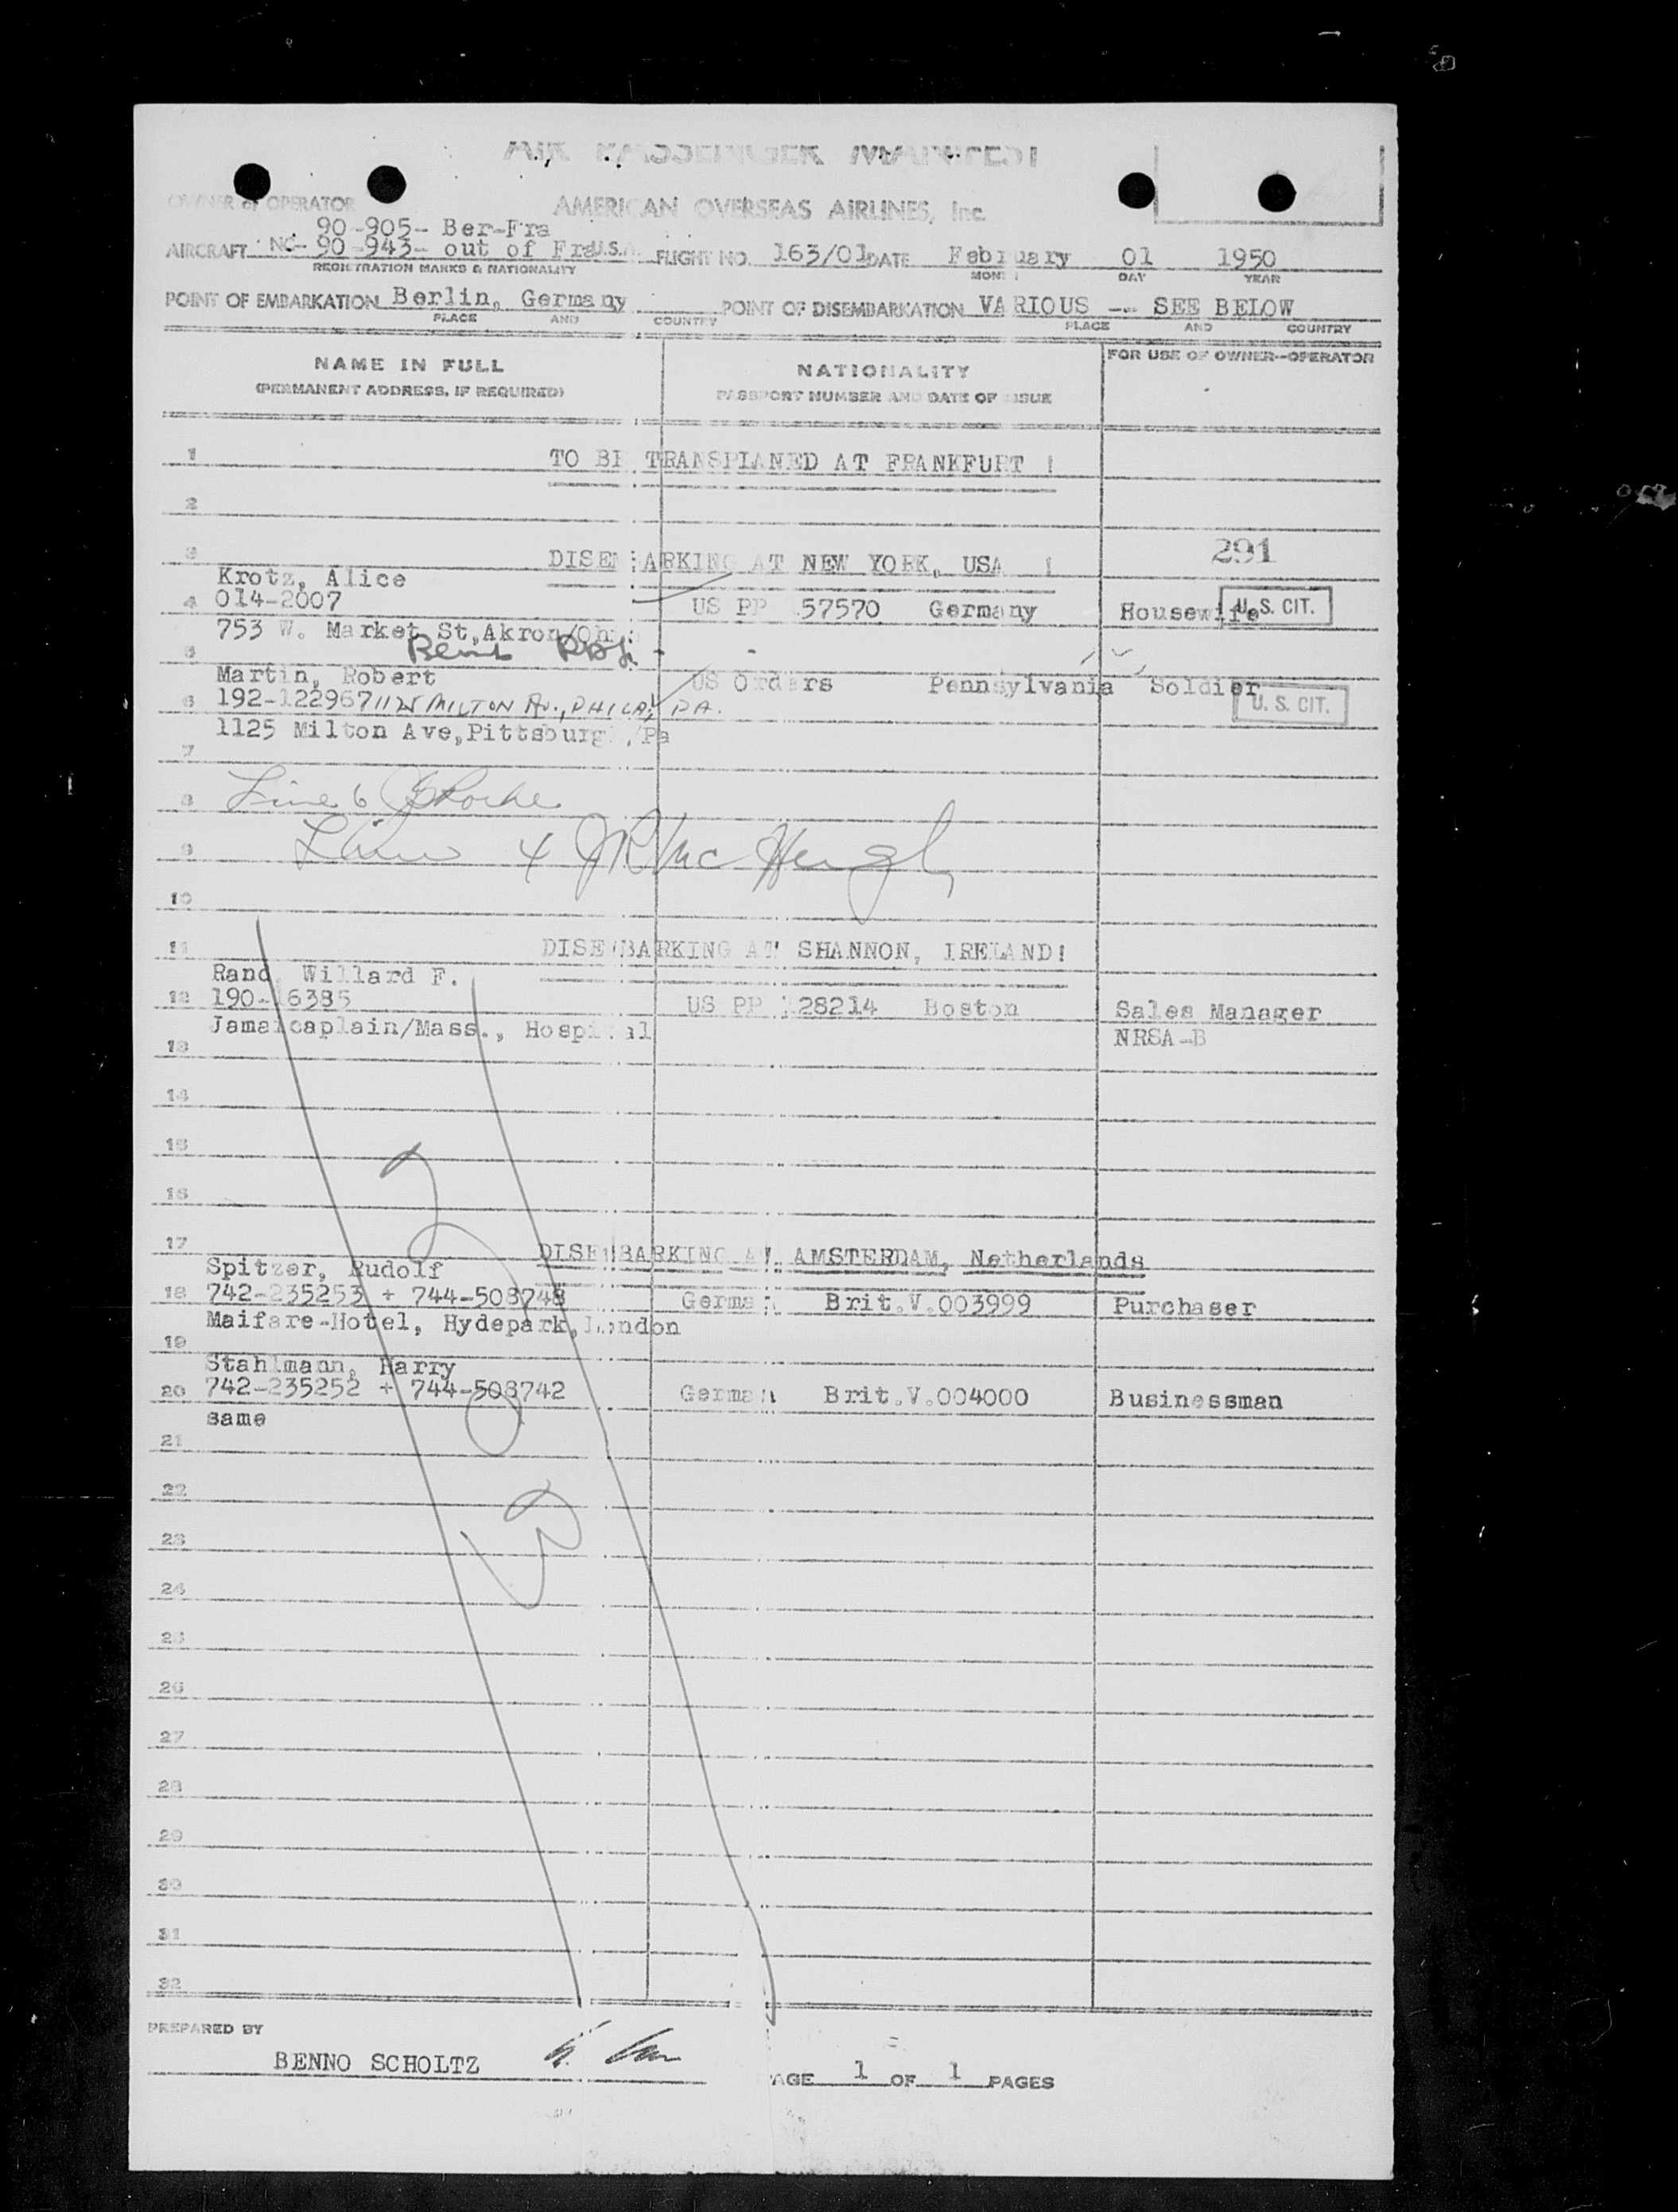 AIR PASSENGER MANIFEST
OWNER or OPERATOR AMERICAN OVERSEAS AIRLINES, Inc
90-905- Ber-Fra
AIRCRAFT NC- 90-943- out of Fra U.S.A. FLIGHT NO. 163/01 DATE February 01 1950
REGISTRATION MARKS & NATIONALITY MONTH DAY YEAR
POINT OF EMBARKATION Berlin, Germany POINT OF DISEMBARKATION VARIOUS -- SEE BELOW
PLACE AND COUNTRY PLACE AND COUNTRY
NAME IN FULL NATIONALITY FOR USE OF OWNER--OPERATOR
(PERMANENT ADDRESS, IF REQUIRED) PASSPORT NUMBER AND DATE OF ISSUE
1 TO BE TRANSPLANED AT FRANKFURT !
2
3 DISEMBARKING AT NEW YORK, USA ! 291
Krotz, Alice
4 014-2007 US PP 57570 Germany Housewife U. S. CIT.
753 W. Market St,Akron/Oh
5
Martin, Robert US Orders Pennsylvania Soldier
6 192-122967 1125 MILTON AV., PHILA, PA. U. S. CIT.
1125 Milton Ave,Pittsburgh,/Pa
7
8 Line 6
9 Line 4 JR McHugh
10
11 DISEMBARKING AT SHANNON, IRELAND!
Rand, Willard F.
12 190-16385 US PP 128214 Boston Sales Manager
Jamaicaplain/Mass., Hospital NRSA-B
13
14
15
16
17 DISEMBARKING AT AMSTERDAM, Netherlands
Spitzer, Rudolf
18 742-235253 + 744-508748 German Brit.V.003999 Purchaser
Maifare-Hotel, Hydepark,London
19
Stahlmann, Harry
20 742-235252 + 744-508742 German Brit.V.004000 Businessman
same
21
22
23
24
25
26
27
28
29
30
31
32
PREPARED BY
BENNO SCHOLTZ PAGE 1 OF 1 PAGES